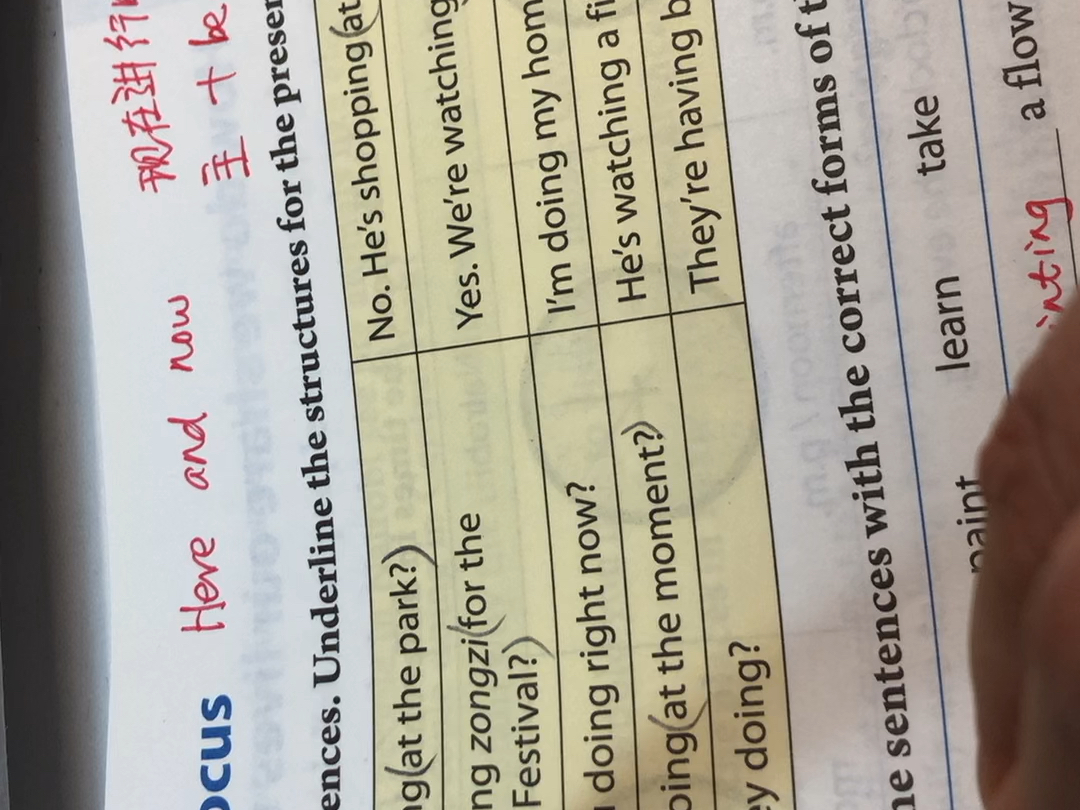 ocus Here and now 现在进行
主 + be
ences. Underline the structures for the presen
ng (at the park?) No. He's shopping (at
ng zongzi (for the Yes. We're watching
Festival?)
doing right now? I'm doing my hom
oing (at the moment?) He's watching a fi
ey doing? They're having b
he sentences with the correct forms of t
paint learn take
inting a flow